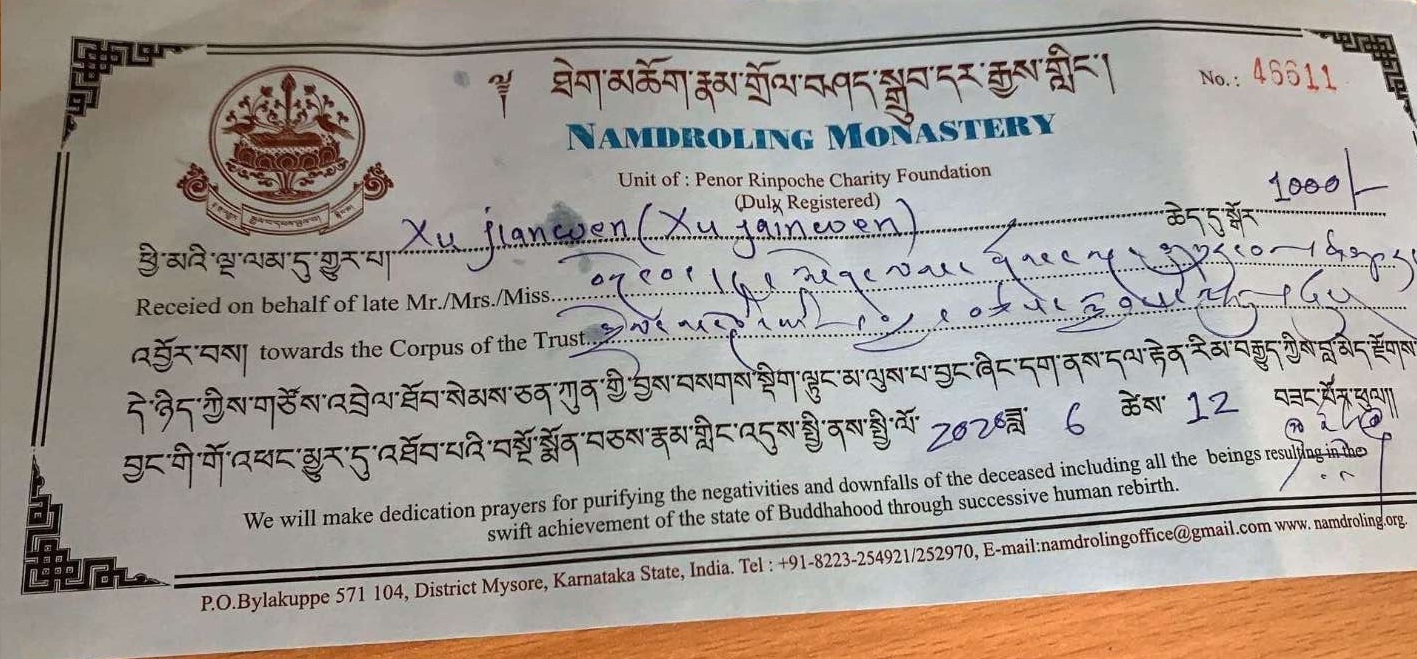 ༄ ཐེག་མཆོག་རྣམ་གྲོལ་བཤད་སྒྲུབ་དར་རྒྱས་གླིང་།
No.: 46611
NAMDROLING MONASTERY
Unit of : Penor Rinpoche Charity Foundation
(Duly Registered)
ཕྱི་མའི་ལྔ་ལམ་དུ་གྱུར་པ། Xu jianwen (Xu jainwen) ཆེད་དུ་སྐོར་ 1000/-
Receied on behalf of late Mr./Mrs./Miss
འབྱོར་བས། towards the Corpus of the Trust
དེ་ཉིད་ཀྱིས་གཙོས་འབྲེལ་ཐོབ་སེམས་ཅན་ཀུན་གྱི་བྱས་བསགས་སྡིག་ལྟུང་མ་ལུས་པ་བྱང་ཞིང་དག་ནས་དལ་རྟེན་རིམ་བརྒྱུད་ཀྱིས་བླ་མེད་རྫོགས་
བྱང་གི་གོ་འཕང་མྱུར་དུ་འཐོབ་པའི་བསྔོ་སྨོན་བཅས་རྣམ་གླིང་འདུས་སྤྱི་ནས་སྤྱི་ལོ་ 2026 ཟླ་ 6 ཚེས་ 12 བཟང་པོར་ཕུལ།།
We will make dedication prayers for purifying the negativities and downfalls of the deceased including all the beings resulting in the
swift achievement of the state of Buddhahood through successive human rebirth.
P.O.Bylakuppe 571 104, District Mysore, Karnataka State, India. Tel : +91-8223-254921/252970, E-mail:namdrolingoffice@gmail.com www. namdroling.org.